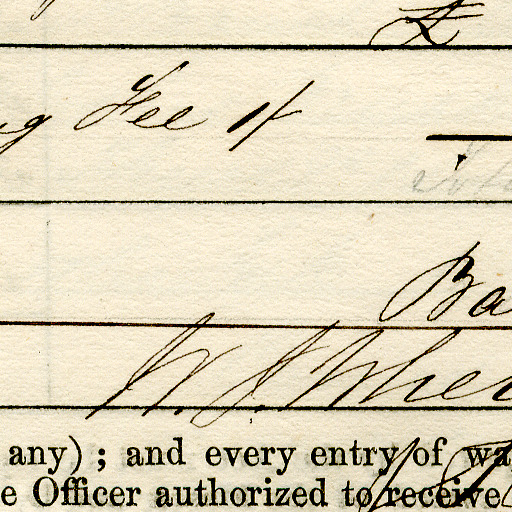 £
Fee 1/
Ba
W. J. Whee
any) ; and every entry of wa
e Officer authorized to receive